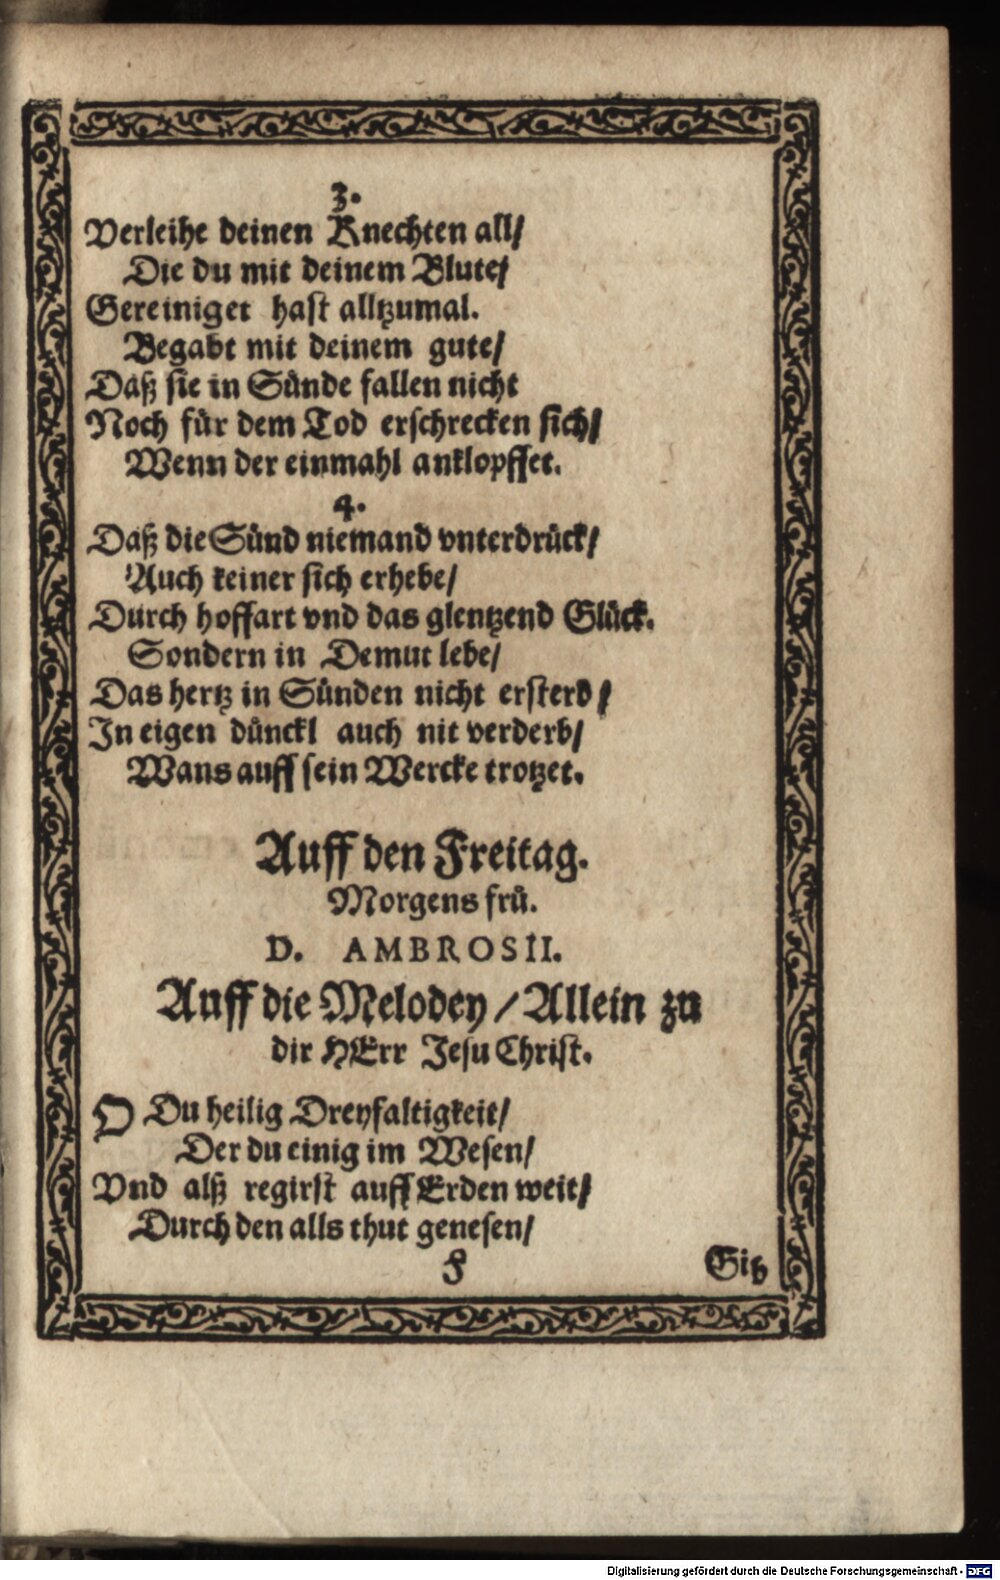 3.
Verleihe deinen Knechten all/
Die du mit deinem Blute/
Gereiniget hast alltzumal.
Begabt mit deinem gute/
Daß sie in Sünde fallen nicht
Noch für dem Tod erschrecken sich/
Wenn der einmahl anklopffet.
4.
Daß die Sünd niemand vnterdrück/
Auch keiner sich erhebe/
Durch hoffart vnd das glentzend Glück.
Sondern in Demut lebe/
Das hertz in Sünden nicht ersterb/
In eigen dünckl auch nit verderb/
Wans auff sein Wercke trotzet.
Auff den Freitag.
Morgens frü.
D. AMBROSII.
Auff die Melodey/Allein zu
dir HErr Jesu Christ.
O Du heilig Dreyfaltigkeit/
Der du einig im Wesen/
Vnd alß regirst auff Erden weit/
Durch den alls thut genesen/
F Gib
Digitalisierung gefördert durch die Deutsche Forschungsgemeinschaft - DFG